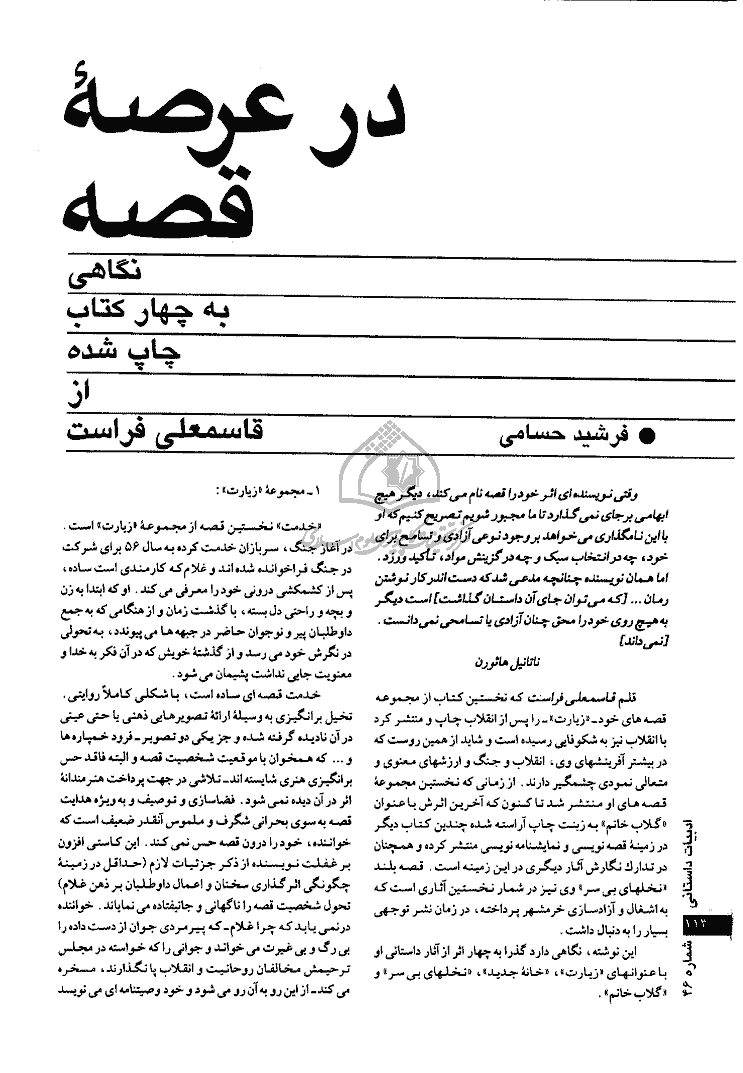 در عرصهٔ
قصه
نگاهی
به چهار کتاب
چاپ شده
از
قاسمعلی فراست
● فرشید حسامی
وقتی نویسنده ای اثر خود را قصه نام می کند، دیگر هیچ
ابهامی برجای نمی گذارد تا ما مجبور شویم تصریح کنیم که او
با این نامگذاری می خواهد بر وجود نوعی آزادی و تسامح برای
خود، چه در انتخاب سبک و چه در گزینش مواد، تأکید ورزد.
اما همان نویسنده چنانچه مدعی شد که دست اندر کار نوشتن
رمان ... [که می توان جای آن داستان گذاشت] است دیگر
به هیچ روی خود را محق چنان آزادی یا تسامحی نمی دانست.
[نمی داند]
ناتانیل هاثورن
قلم قاسمعلی فراست که نخستین کتاب از مجموعه
قصه های خود-«زیارت»- را پس از انقلاب چاپ و منتشر کرد
با انقلاب نیز به شکوفایی رسیده است و شاید از همین روست که
در بیشتر آفرینشهای وی، انقلاب و جنگ و ارزشهای معنوی و
متعالی نمودی چشمگیر دارند. از زمانی که نخستین مجموعهٔ
قصه های او منتشر شد تا کنون که آخرین اثرش با عنوان
«گلاب خانم» به زینت چاپ آراسته شده چندین کتاب دیگر
در زمینهٔ قصه نویسی و نمایشنامه نویسی منتشر کرده و همچنان
در تدارک نگارش آثار دیگری در این زمینه است. قصه بلند
«نخلهای بی سر» وی نیز در شمار نخستین آثاری است که
به اشغال و آزادسازی خرمشهر پرداخته، در زمان نشر توجهی
بسیار را به دنبال داشت.
این نوشته، نگاهی دارد گذرا به چهار اثر از آثار داستانی او
با عنوانهای «زیارت»، «خانهٔ جدید»، «نخلهای بی سر» و
«گلاب خانم».
۱- مجموعهٔ «زیارت»:
«خدمت» نخستین قصه از مجموعهٔ «زیارت» است.
در آغاز جنگ، سربازان خدمت کرده به سال ۵۶ برای شرکت
در جنگ فراخوانده شده اند و غلام که کارمندی است ساده،
پس از کشمکشی درونی خود را معرفی می کند. او که ابتدا به زن
و بچه و راحتی دل بسته، با گذشت زمان و از هنگامی که به جمع
داوطلبان پیر و نوجوان حاضر در جبهه ها می پیوندد، به تحولی
در نگرش خود می رسد و از گذشتهٔ خویش که در آن فکر به خدا و
معنویت جایی نداشت پشیمان می شود.
خدمت قصه ای ساده است، با شکلی کاملاً روایتی.
تخیل برانگیزی به وسیلهٔ ارائهٔ تصویرهایی ذهنی یا حتی عینی
در آن نادیده گرفته شده و جز یکی دو تصویر- فرود خمپاره ها
و ... که همخوان با موقعیت شخصیت قصه و البته فاقد حس
برانگیزی هنری شایسته اند- تلاشی در جهت پرداخت هنرمندانهٔ
اثر در آن دیده نمی شود. فضاسازی و توصیف و به ویژه هدایت
قصه به سوی بحرانی شگرف و ملموس آنقدر ضعیف است که
خواننده، خود را درون قصه حس نمی کند. این کاستی افزون
بر غفلت نویسنده از ذکر جزئیات لازم (حداقل در زمینهٔ
چگونگی اثرگذاری سخنان و اعمال داوطلبان بر ذهن غلام)
تحول شخصیت قصه را ناگهانی و جانیفتاده می نمایاند. خواننده
درنمی یابد که چرا غلام- که پیرمردی جوان از دست داده را
بی رگ و بی غیرت می خواند و جوانی را که خواسته در مجلس
ترحیمش مخالفان روحانیت و انقلاب پا نگذارند، مسخره
می کند- از این رو به آن رو می شود و خود وصیتنامه ای می نویسد
ادبیات داستانی
۱۱۳
شماره ۴۶